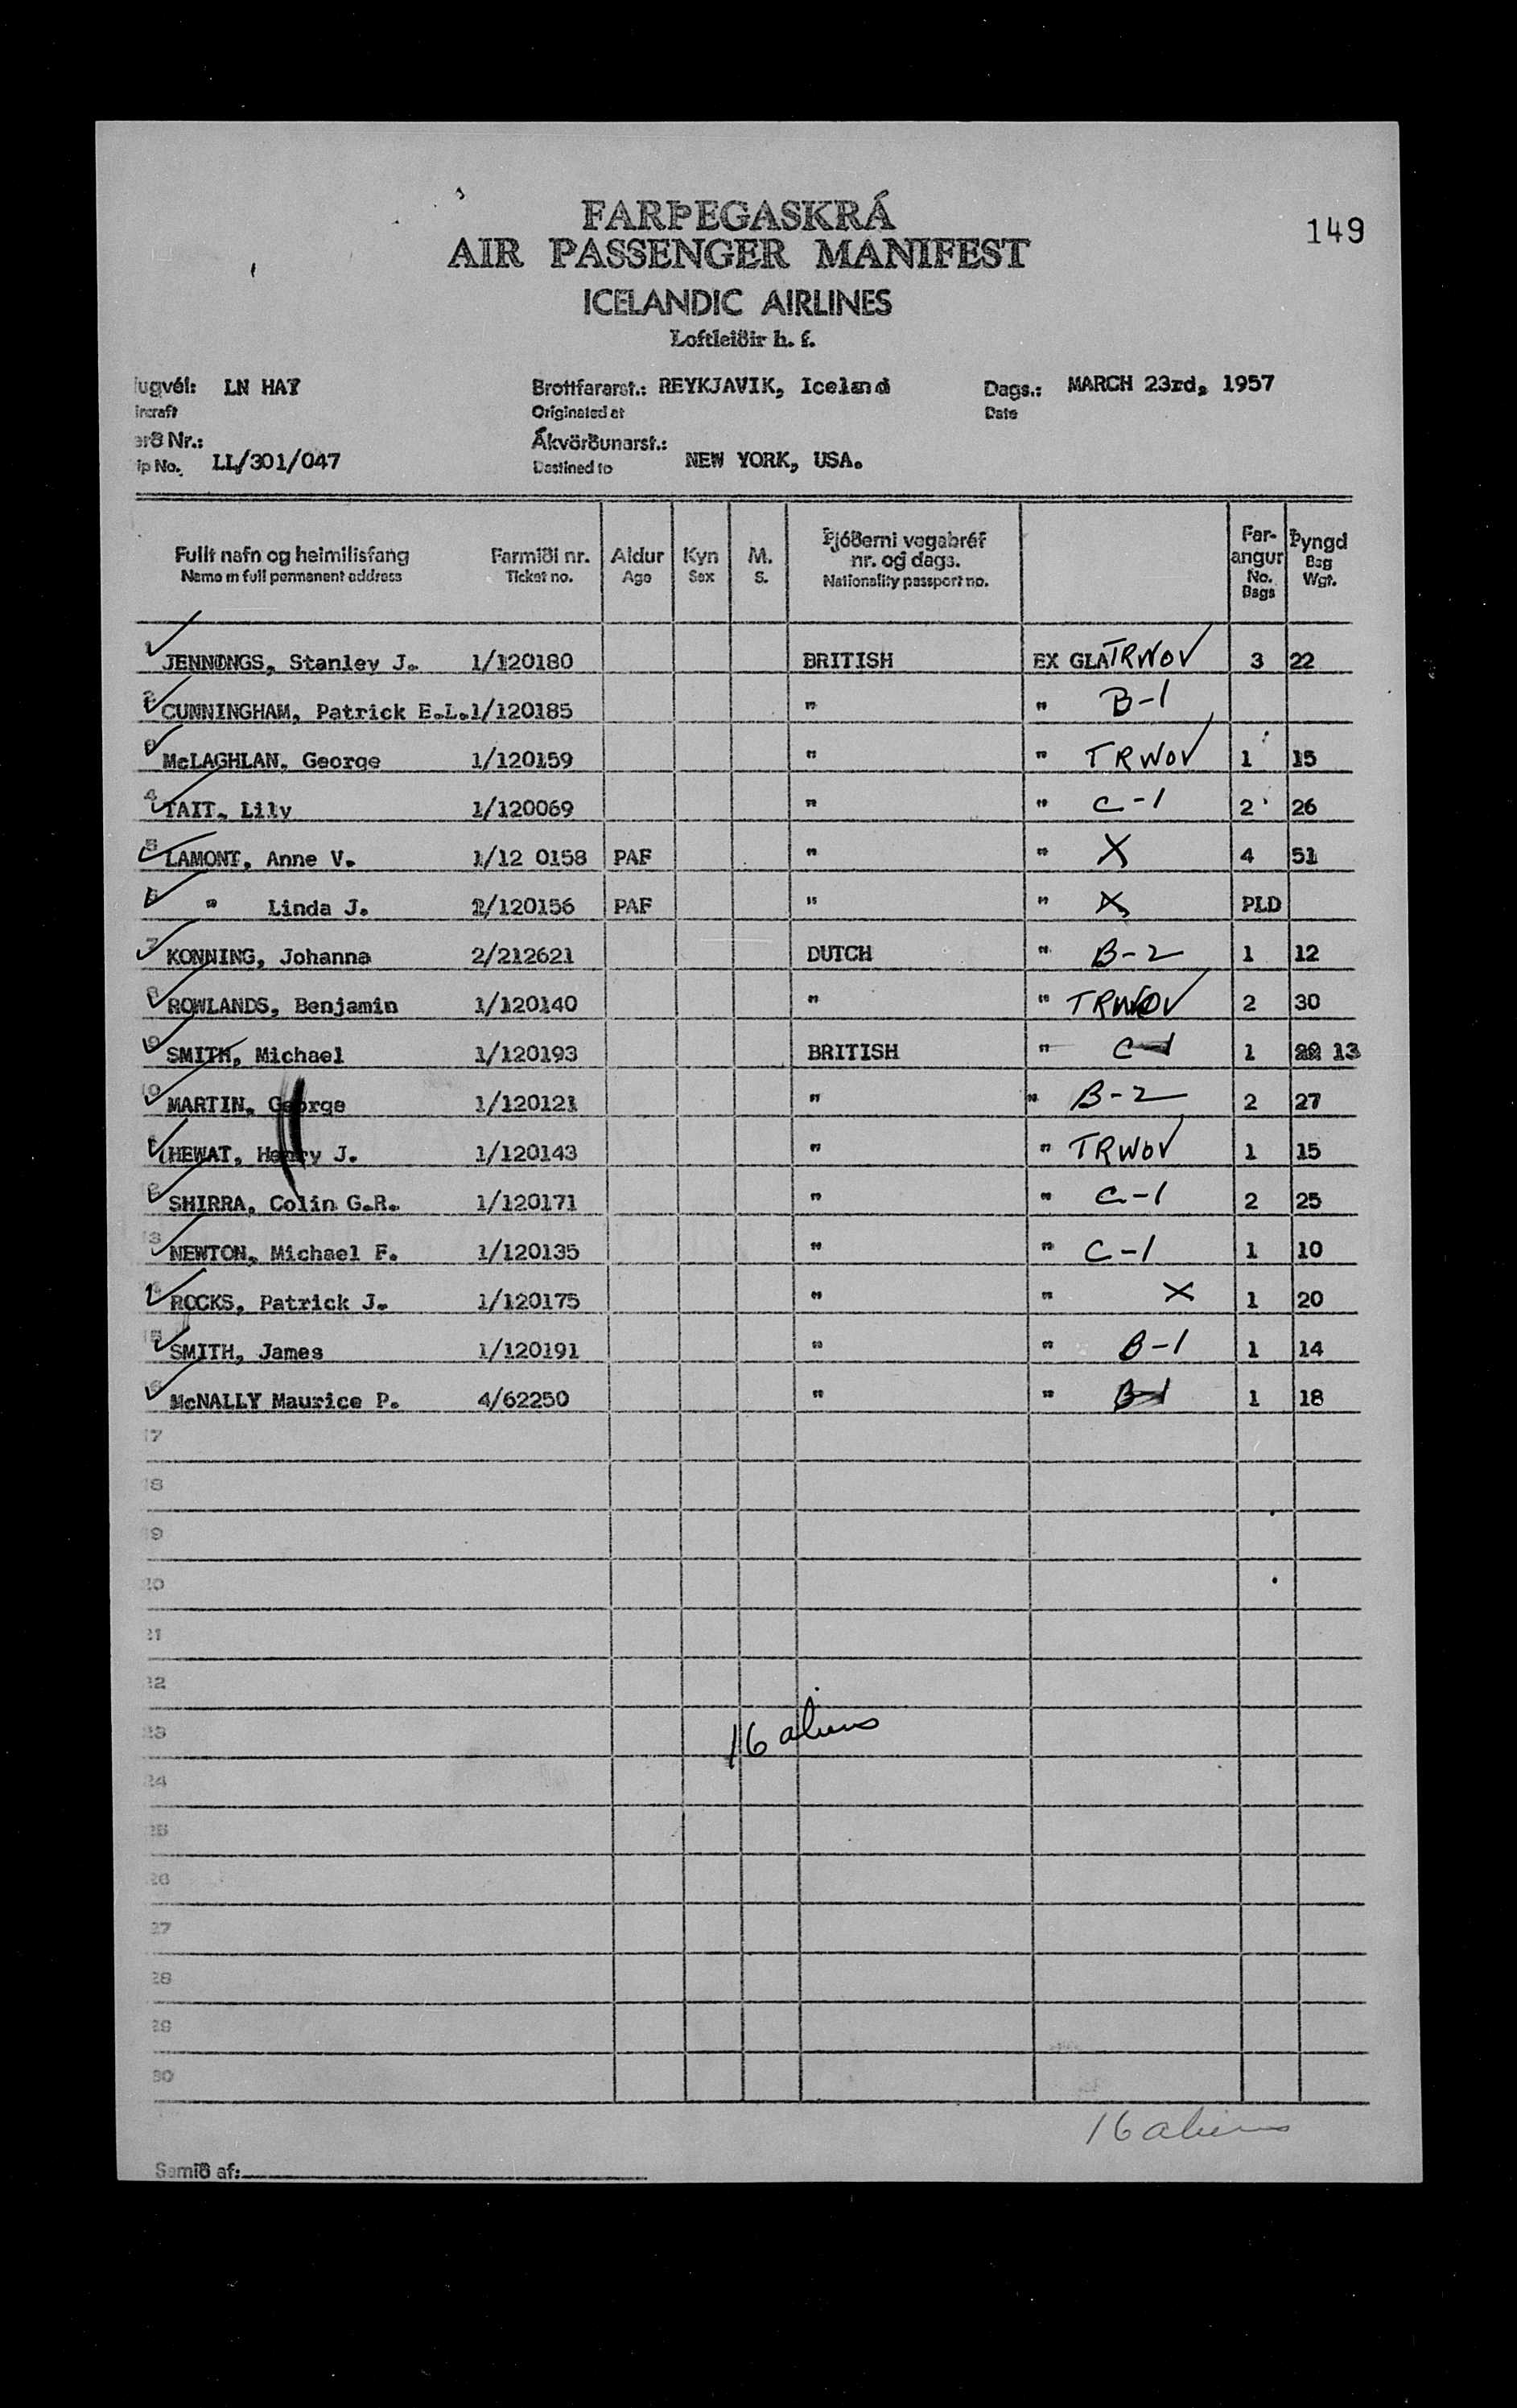 149
FARÞEGASKRÁ
AIR PASSENGER MANIFEST
ICELANDIC AIRLINES
Loftleiðir h. f.
ugvél: LN HAT Brottfararst.: REYKJAVIK, Iceland Dags.: MARCH 23rd, 1957
ircraft Originated at Date
erð Nr.: Ákvörðunarst.:
ip No. LL/301/047 Destined to NEW YORK, USA.
Fullt nafn og heimilisfang Farmiði nr. Aldur Kyn M. Þjóðerni vegabréf nr. og dags. Far-angur Þyngd
Name in full permanent address Ticket no. Age Sex S. Nationality passport no. No. Bags Bag Wgt.
1 JENNINGS, Stanley J. 1/120180 BRITISH EX GLA TRWOV 3 22
2 CUNNINGHAM, Patrick E.L. 1/120185 " " B-1
McLAGHLAN, George 1/120159 " " TRWOV 1 15
4 TAIT, Lily 1/120069 " " C-1 2 26
5 LAMONT, Anne V. 1/12 0158 PAF " " X 4 51
6 " Linda J. 2/120156 PAF " " X PLD
7 KONNING, Johanna 2/212621 DUTCH " B-2 1 12
8 ROWLANDS, Benjamin 1/120140 " " TRWOV 2 30
9 SMITH, Michael 1/120193 BRITISH " C-1 1 13
10 MARTIN, George 1/120121 " " B-2 2 27
HEWAT, Henry J. 1/120143 " " TRWOV 1 15
SHIRRA, Colin G.R. 1/120171 " " C-1 2 25
13 NEWTON, Michael F. 1/120135 " " C-1 1 10
ROCKS, Patrick J. 1/120175 " " X 1 20
15 SMITH, James 1/120191 " " B-1 1 14
McNALLY Maurice P. 4/62250 " " B-1 1 18
17
18
19
20
21
22
23 16 aliens
24
25
26
27
28
29
30
16 aliens
Samið af: